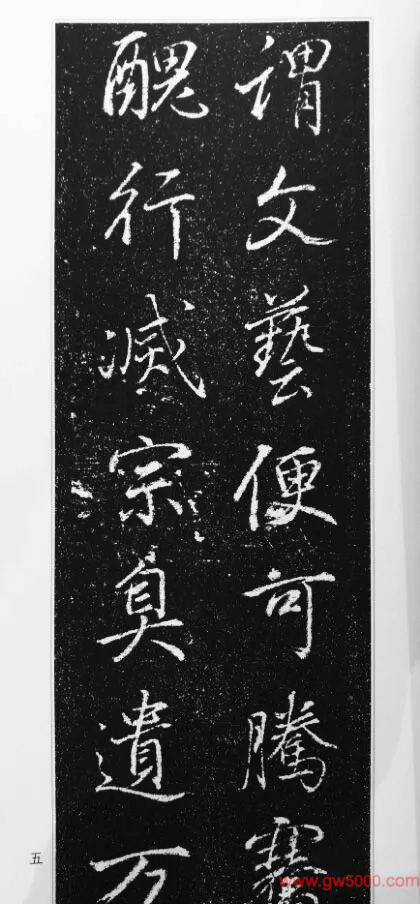 謂文藝便可騰騫
醜行滅宗臭遺万
五
www.gw5000.com